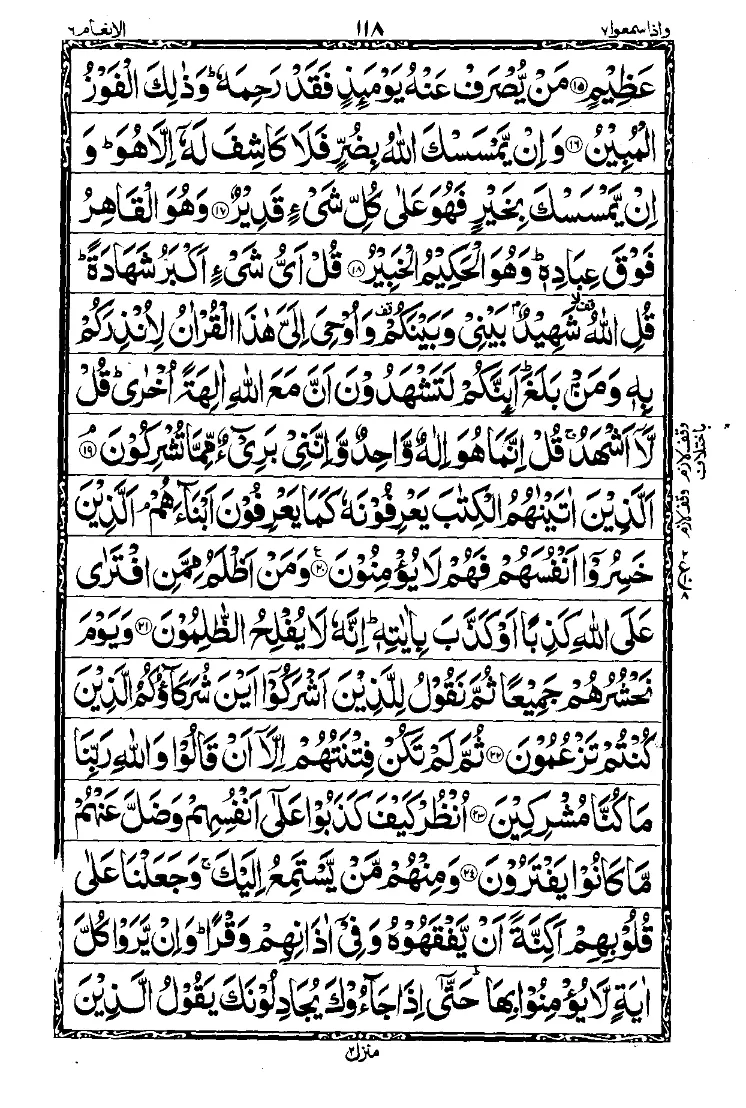 واذاسمعوا٧ ١١٨ الانعام٦
عَظِيْمٍ ۝١٥ مَنْ يُّصْرَفْ عَنْهُ يَوْمَىِٕذٍ فَقَدْ رَحِمَهٗ ؕ وَذٰلِكَ الْفَوْزُ
الْمُبِيْنُ ۝١٦ وَاِنْ يَّمْسَسْكَ اللّٰهُ بِضُرٍّ فَلَا كَاشِفَ لَهٗۤ اِلَّا هُوَ ؕ وَ
اِنْ يَّمْسَسْكَ بِخَيْرٍ فَهُوَ عَلٰى كُلِّ شَىْءٍ قَدِيْرٌ ۝١٧ وَهُوَ الْقَاهِرُ
فَوْقَ عِبَادِهٖ ؕ وَهُوَ الْحَكِيْمُ الْخَبِيْرُ ۝١٨ قُلْ اَىُّ شَىْءٍ اَكْبَرُ شَهَادَةً ؕ
قُلِ اللّٰهُ ۙ قف شَهِيْدٌۢ بَيْنِىْ وَبَيْنَكُمْ قف وَاُوْحِىَ اِلَىَّ هٰذَا الْقُرْاٰنُ لِاُنْذِرَكُمْ
بِهٖ وَمَنْۢ بَلَغَ ؕ اَىِٕنَّكُمْ لَتَشْهَدُوْنَ اَنَّ مَعَ اللّٰهِ اٰلِهَةً اُخْرٰى ؕ قُلْ
لَّاۤ اَشْهَدُ ۚ قُلْ اِنَّمَا هُوَ اِلٰهٌ وَّاحِدٌ وَّاِنَّنِىْ بَرِىْٓءٌ مِّمَّا تُشْرِكُوْنَ ۝١٩ ۘ
اَلَّذِيْنَ اٰتَيْنٰهُمُ الْكِتٰبَ يَعْرِفُوْنَهٗ كَمَا يَعْرِفُوْنَ اَبْنَآءَهُمْ ۘ اَلَّذِيْنَ
خَسِرُوْۤا اَنْفُسَهُمْ فَهُمْ لَا يُؤْمِنُوْنَ ۝٢٠ ع وَمَنْ اَظْلَمُ مِمَّنِ افْتَرٰى
عَلَى اللّٰهِ كَذِبًا اَوْ كَذَّبَ بِاٰيٰتِهٖ ؕ اِنَّهٗ لَا يُفْلِحُ الظّٰلِمُوْنَ ۝٢١ وَيَوْمَ
نَحْشُرُهُمْ جَمِيْعًا ثُمَّ نَقُوْلُ لِلَّذِيْنَ اَشْرَكُوْۤا اَيْنَ شُرَكَآؤُكُمُ الَّذِيْنَ
كُنْتُمْ تَزْعُمُوْنَ ۝٢٢ ثُمَّ لَمْ تَكُنْ فِتْنَتُهُمْ اِلَّاۤ اَنْ قَالُوْا وَاللّٰهِ رَبِّنَا
مَا كُنَّا مُشْرِكِيْنَ ۝٢٣ اُنْظُرْ كَيْفَ كَذَبُوْا عَلٰٓى اَنْفُسِهِمْ وَضَلَّ عَنْهُمْ
مَّا كَانُوْا يَفْتَرُوْنَ ۝٢٤ وَمِنْهُمْ مَّنْ يَّسْتَمِعُ اِلَيْكَ ۚ وَجَعَلْنَا عَلٰى
قُلُوْبِهِمْ اَكِنَّةً اَنْ يَّفْقَهُوْهُ وَفِىْۤ اٰذَانِهِمْ وَقْرًا ؕ وَاِنْ يَّرَوْا كُلَّ
اٰيَةٍ لَّا يُؤْمِنُوْا بِهَا ؕ حَتّٰۤى اِذَا جَآءُوْكَ يُجَادِلُوْنَكَ يَقُوْلُ الَّذِيْنَ
وقف لازم
وقف لازم
باختلاف
منزل٢